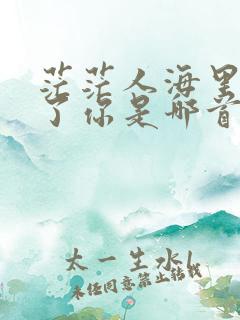 茫茫人海里
了你是哪首
太一生水l
未经同意禁止转载